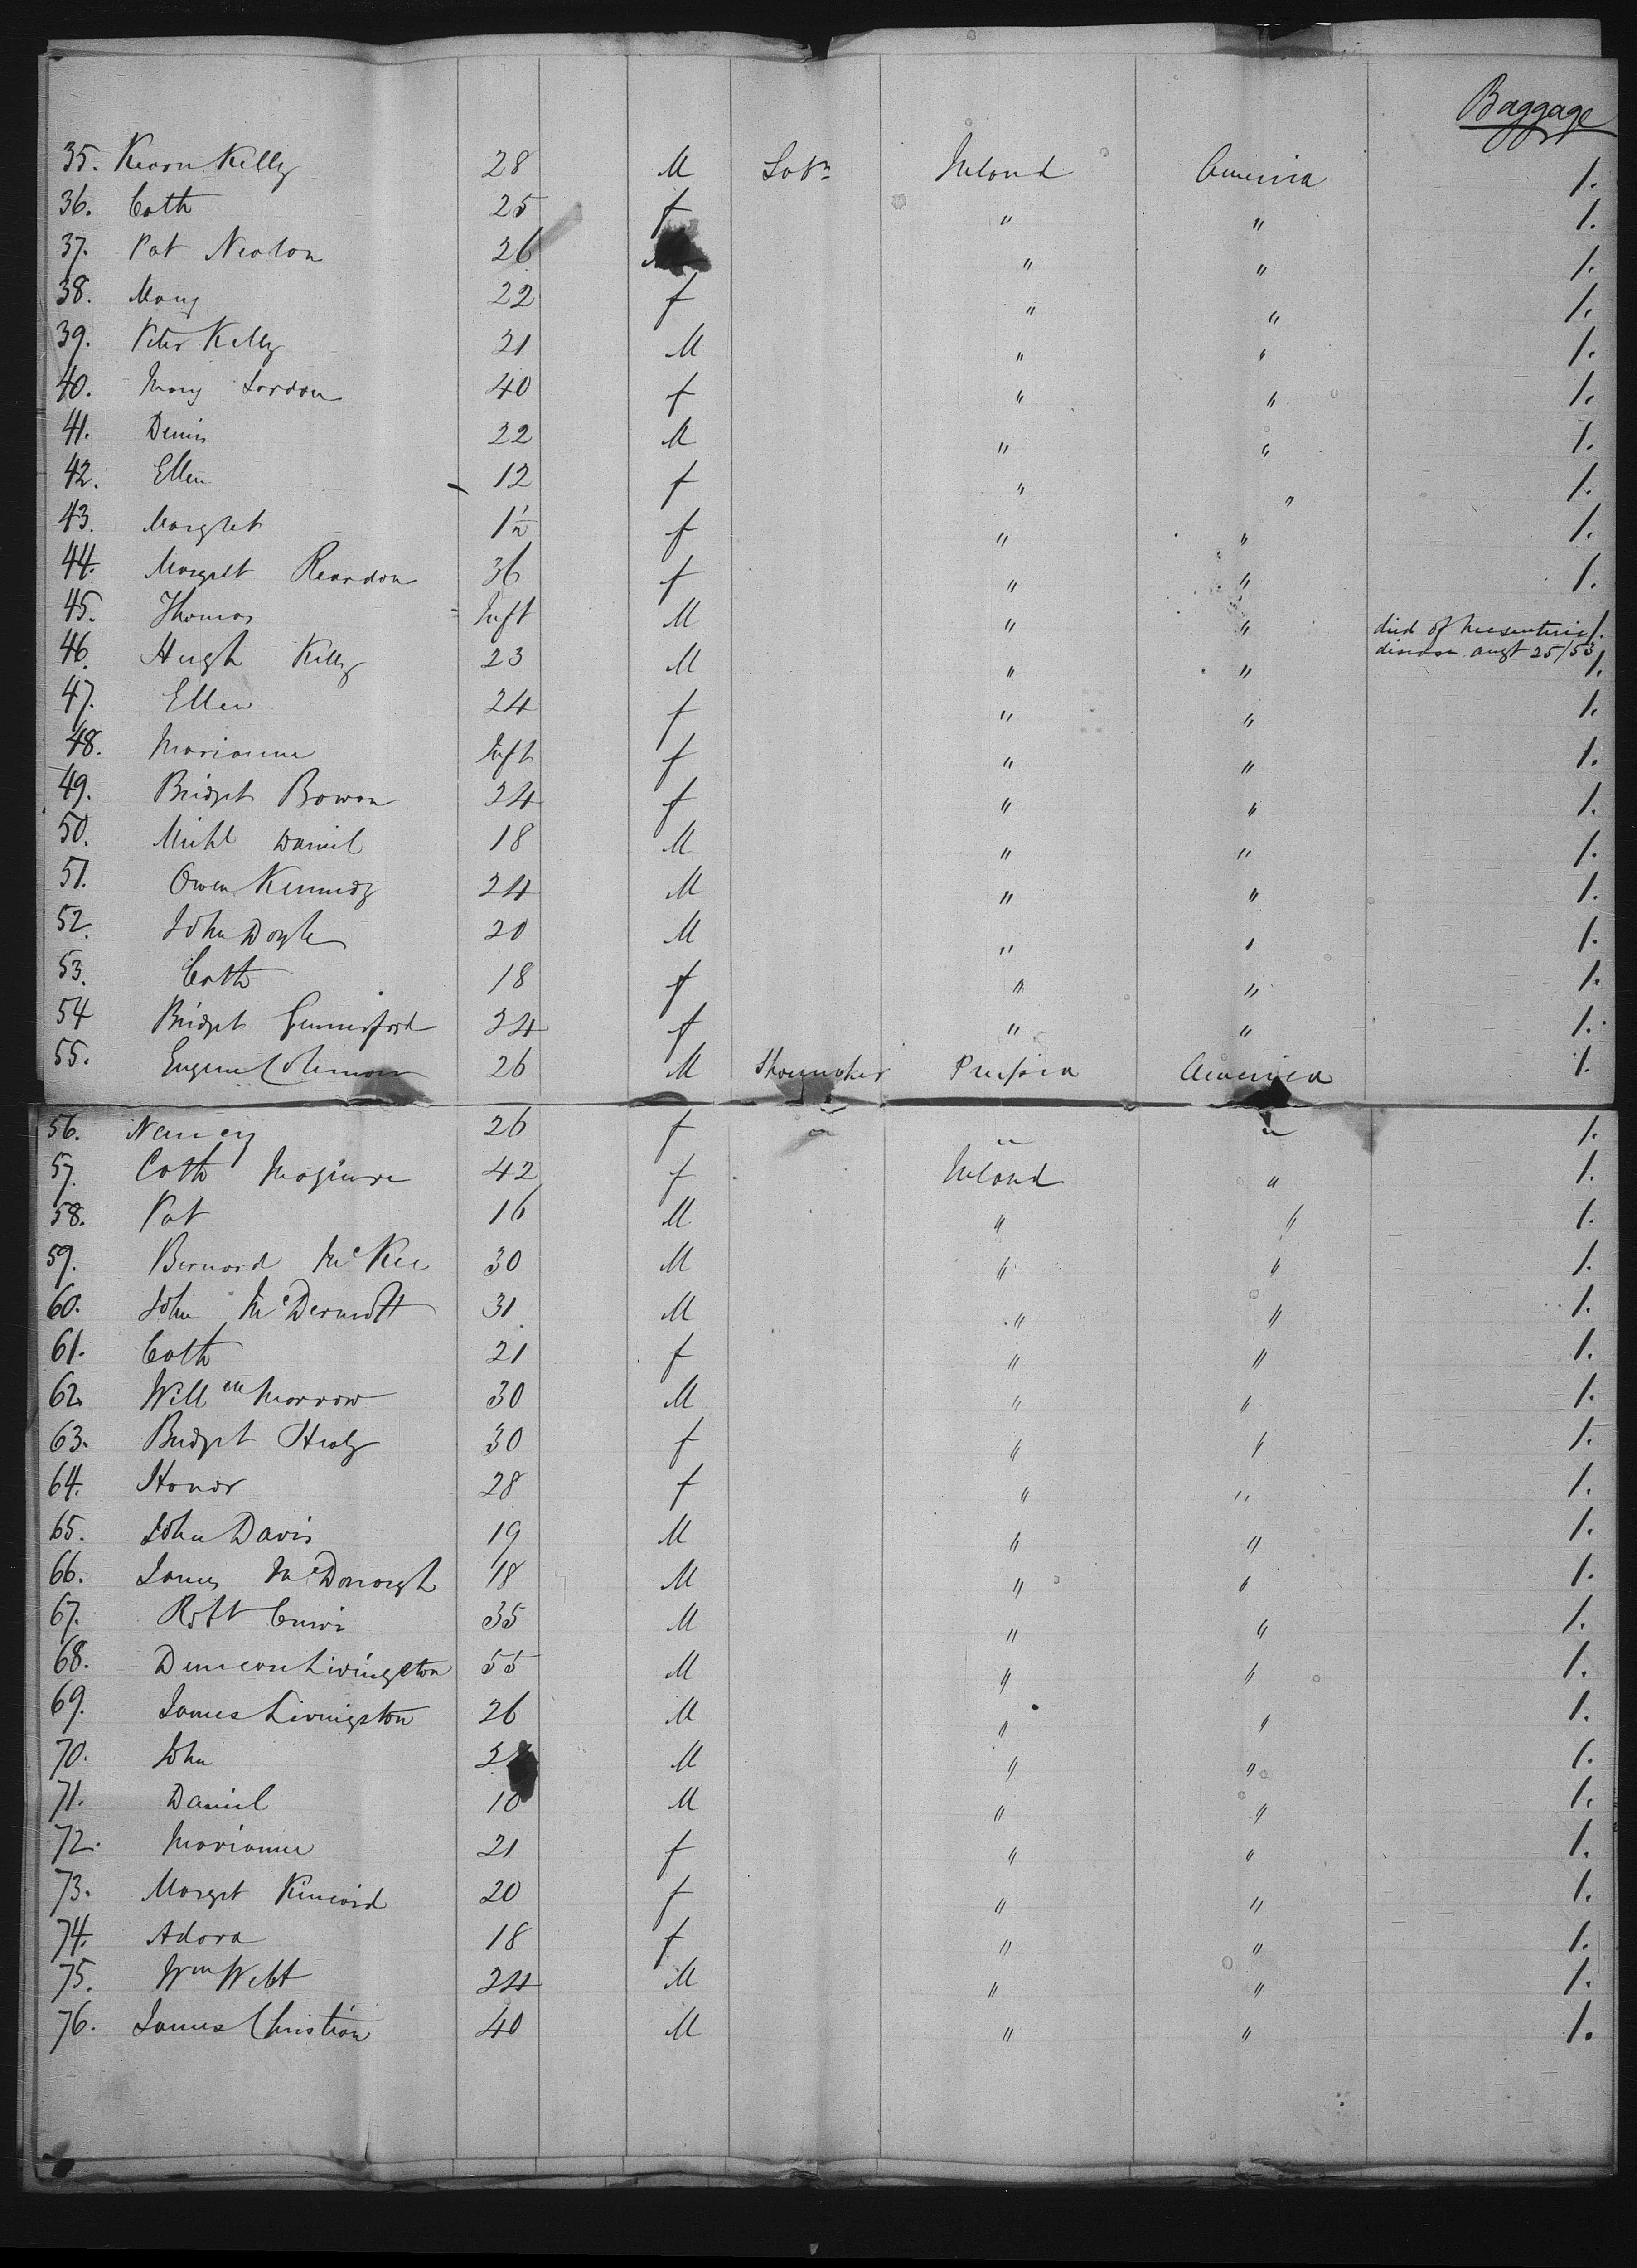 Baggage
35. Kearn Kelly 28 M Labr Ireland America 1.
36. Cath 25 f " " 1.
37. Pat Nealon 26 " " 1.
38. Mary 22 f " " 1.
39. Peter Kelly 21 M " " 1.
40. Mary 40 f " " 1.
41. Denis 22 M " " 1.
42. Ellen 12 f " " 1.
43. Margret f " " 1.
44. Margret Reardon 36 f " " 1.
45. Thomas Inft M " " died of Mesenteric 1.
disease augt 25/53
46. Hugh Kelly 23 M " " 1.
47. Ellen 24 f " " 1.
48. Marianne Inft f " " 1.
49. Bridget Bowen 24 f " " 1.
50. Michl Daniel 18 M " " 1.
51. Owen Kennedy 24 M " " 1.
52. John Doyle 20 M " " 1.
53. Cath 18 f " " 1.
54 Bridget 24 f " " 1.
55. Eugene Coleman 26 M Shoemaker Prussia America 1.
56. Nancy 26 f " " " 1.
57. Cath Maguire 42 f Ireland " 1.
58. Pat 16 M " " 1.
59. Bernard McKee 30 M " " 1.
60. John McDermott 31 M " " 1.
61. Cath 21 f " " 1.
62. Willm Morrow 30 M " " 1.
63. Bridget Healy 30 f " " 1.
64. Honor 28 f " " 1.
65. John Davis 19 M " " 1.
66. James McDonough 18 M " " 1.
67. Robt 35 M " " 1.
68. Duncan Livingston 55 M " " 1.
69. James Livingston 26 M " " 1.
70. John M " " 1.
71. Daniel 10 M " " 1.
72. Marianne 21 f " " 1.
73. Margret Kincaid 20 f " " 1.
74. Adora 18 f " " 1.
75. Wm Webt 24 M " " 1.
76. James Christian 40 M " " 1.